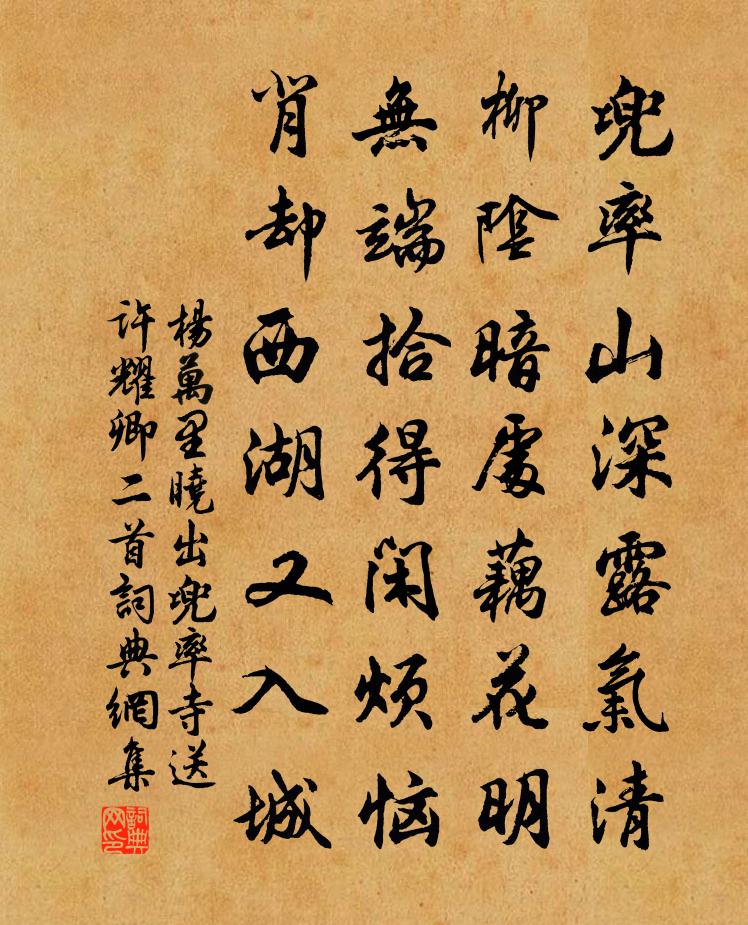 兜率山深露氣清
柳陰暗處藕花明
無端拾得閑煩恼
背却西湖又入城
楊萬里曉出兜率寺送
許耀卿二首詞典網集
詞典网印